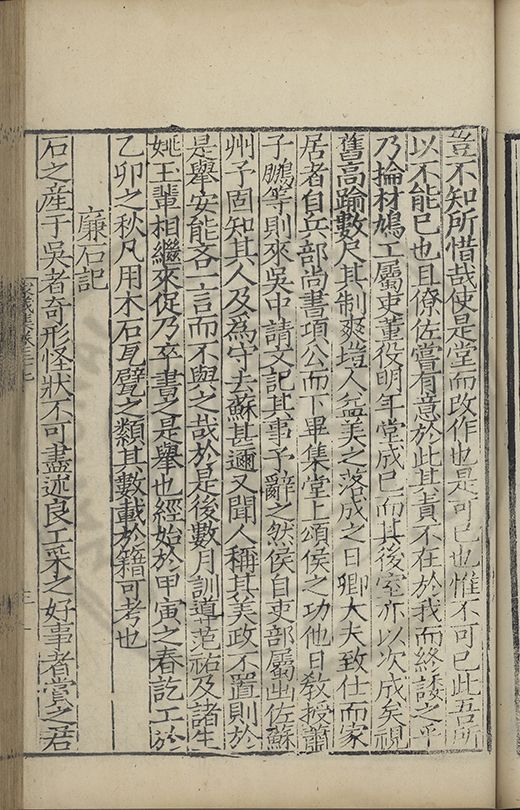 豈不知所惜哉使是堂而改作也是可已也惟不可已此吾所
以不能已也且僚佐嘗有意於此其責不在於我而終諉之乎
乃掄材鳩工屬吏董役明年堂成已而其後室亦以次成矣視
舊高踰數尺其制爽塏人益美之落成之日卿大夫致仕而家
居者自兵部尚書項公而下畢集堂上頌侯之功他日教授蕭
子鵬等則來吳中請文記其事予辭之然侯自吏部屬出佐蘇
州予固知其人及為守去蘇甚邇又聞人稱其美政不置則於
是舉安能吝一言而不與之哉於是後數月訓導范祐及諸生
姚玉輩相繼來促乃卒書之是舉也經始於甲寅之春訖工於
乙卯之秋凡用木石瓦甓之類其數載於籍可考也
廉石記
石之產于吳者奇形怪狀不可盡述良工采之好事者賞之君